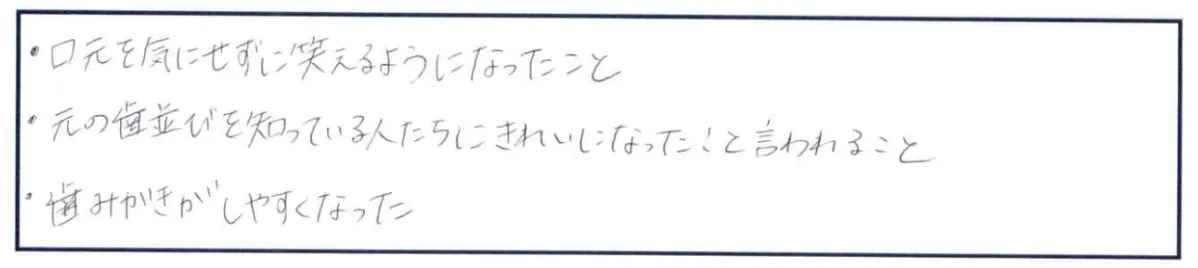 ・口元を気にせずに笑えるようになったこと
・元の歯並びを知っている人たちにきれいになった！と言われること
・歯みがきがしやすくなった